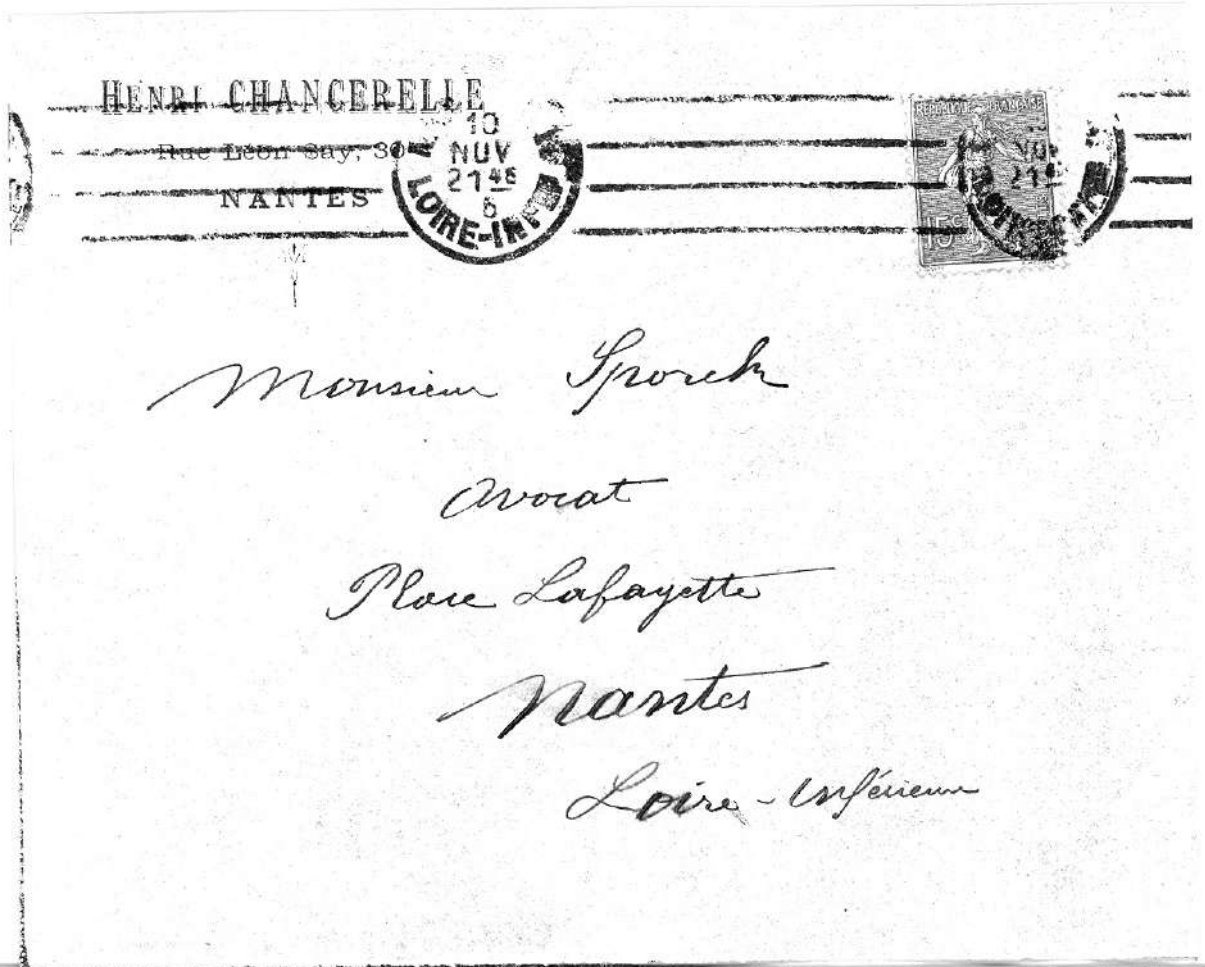 HENRI CHANCERELLE
Rue Léon Say, 30
NANTES
10
NOV
21 45
6
LOIRE-INFRE
REPUBLIQUE FRANCAISE
15c
Monsieur Sporck
Avocat
Place Lafayette
Nantes
Loire-Inférieure